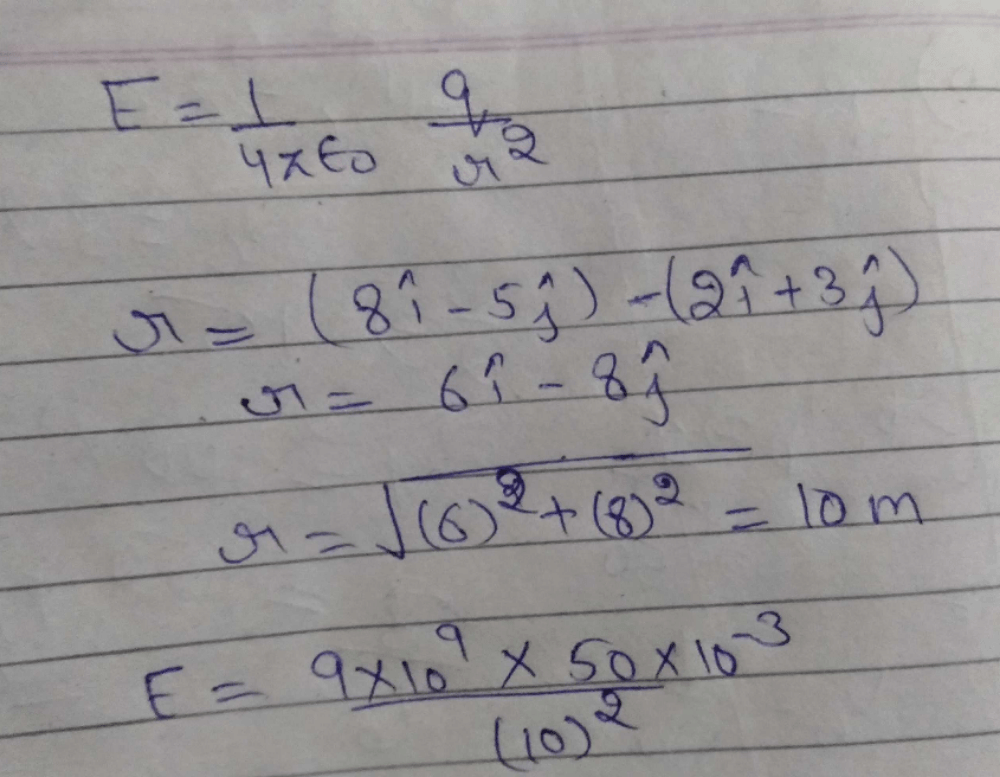 E = 1/4πϵ0 q/r^2
r = (8î - 5ĵ) - (2î + 3ĵ)
r = 6î - 8ĵ
r = √(6)^2 + (8)^2 = 10 m
E = 9×10^9 × 50×10^-3/(10)^2